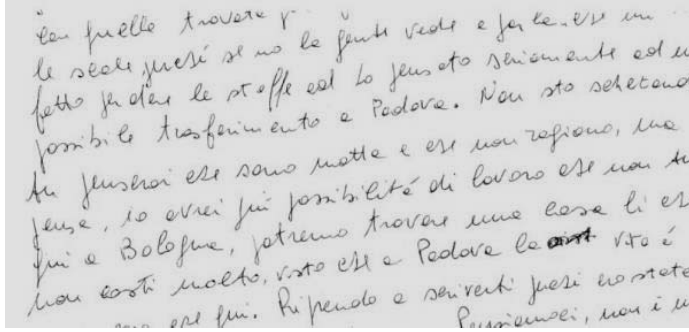 con quelle trovate p
le scale, perché se no la gente vede e
fatto perdere le staffe ed ho pensato seriamente ad u
possibile trasferimento a Padova. Non sto scherzand
tu penserai che sono matta e che non ragiono, ma
pensa, io avrei più possibilità di lavoro che non tu
qui a Bologna, potremo trovare una casa lì ch
non costi molto, visto che a Padova la vita è
che qui. Riprendo a scriverti perché
Pensiamoci, non è